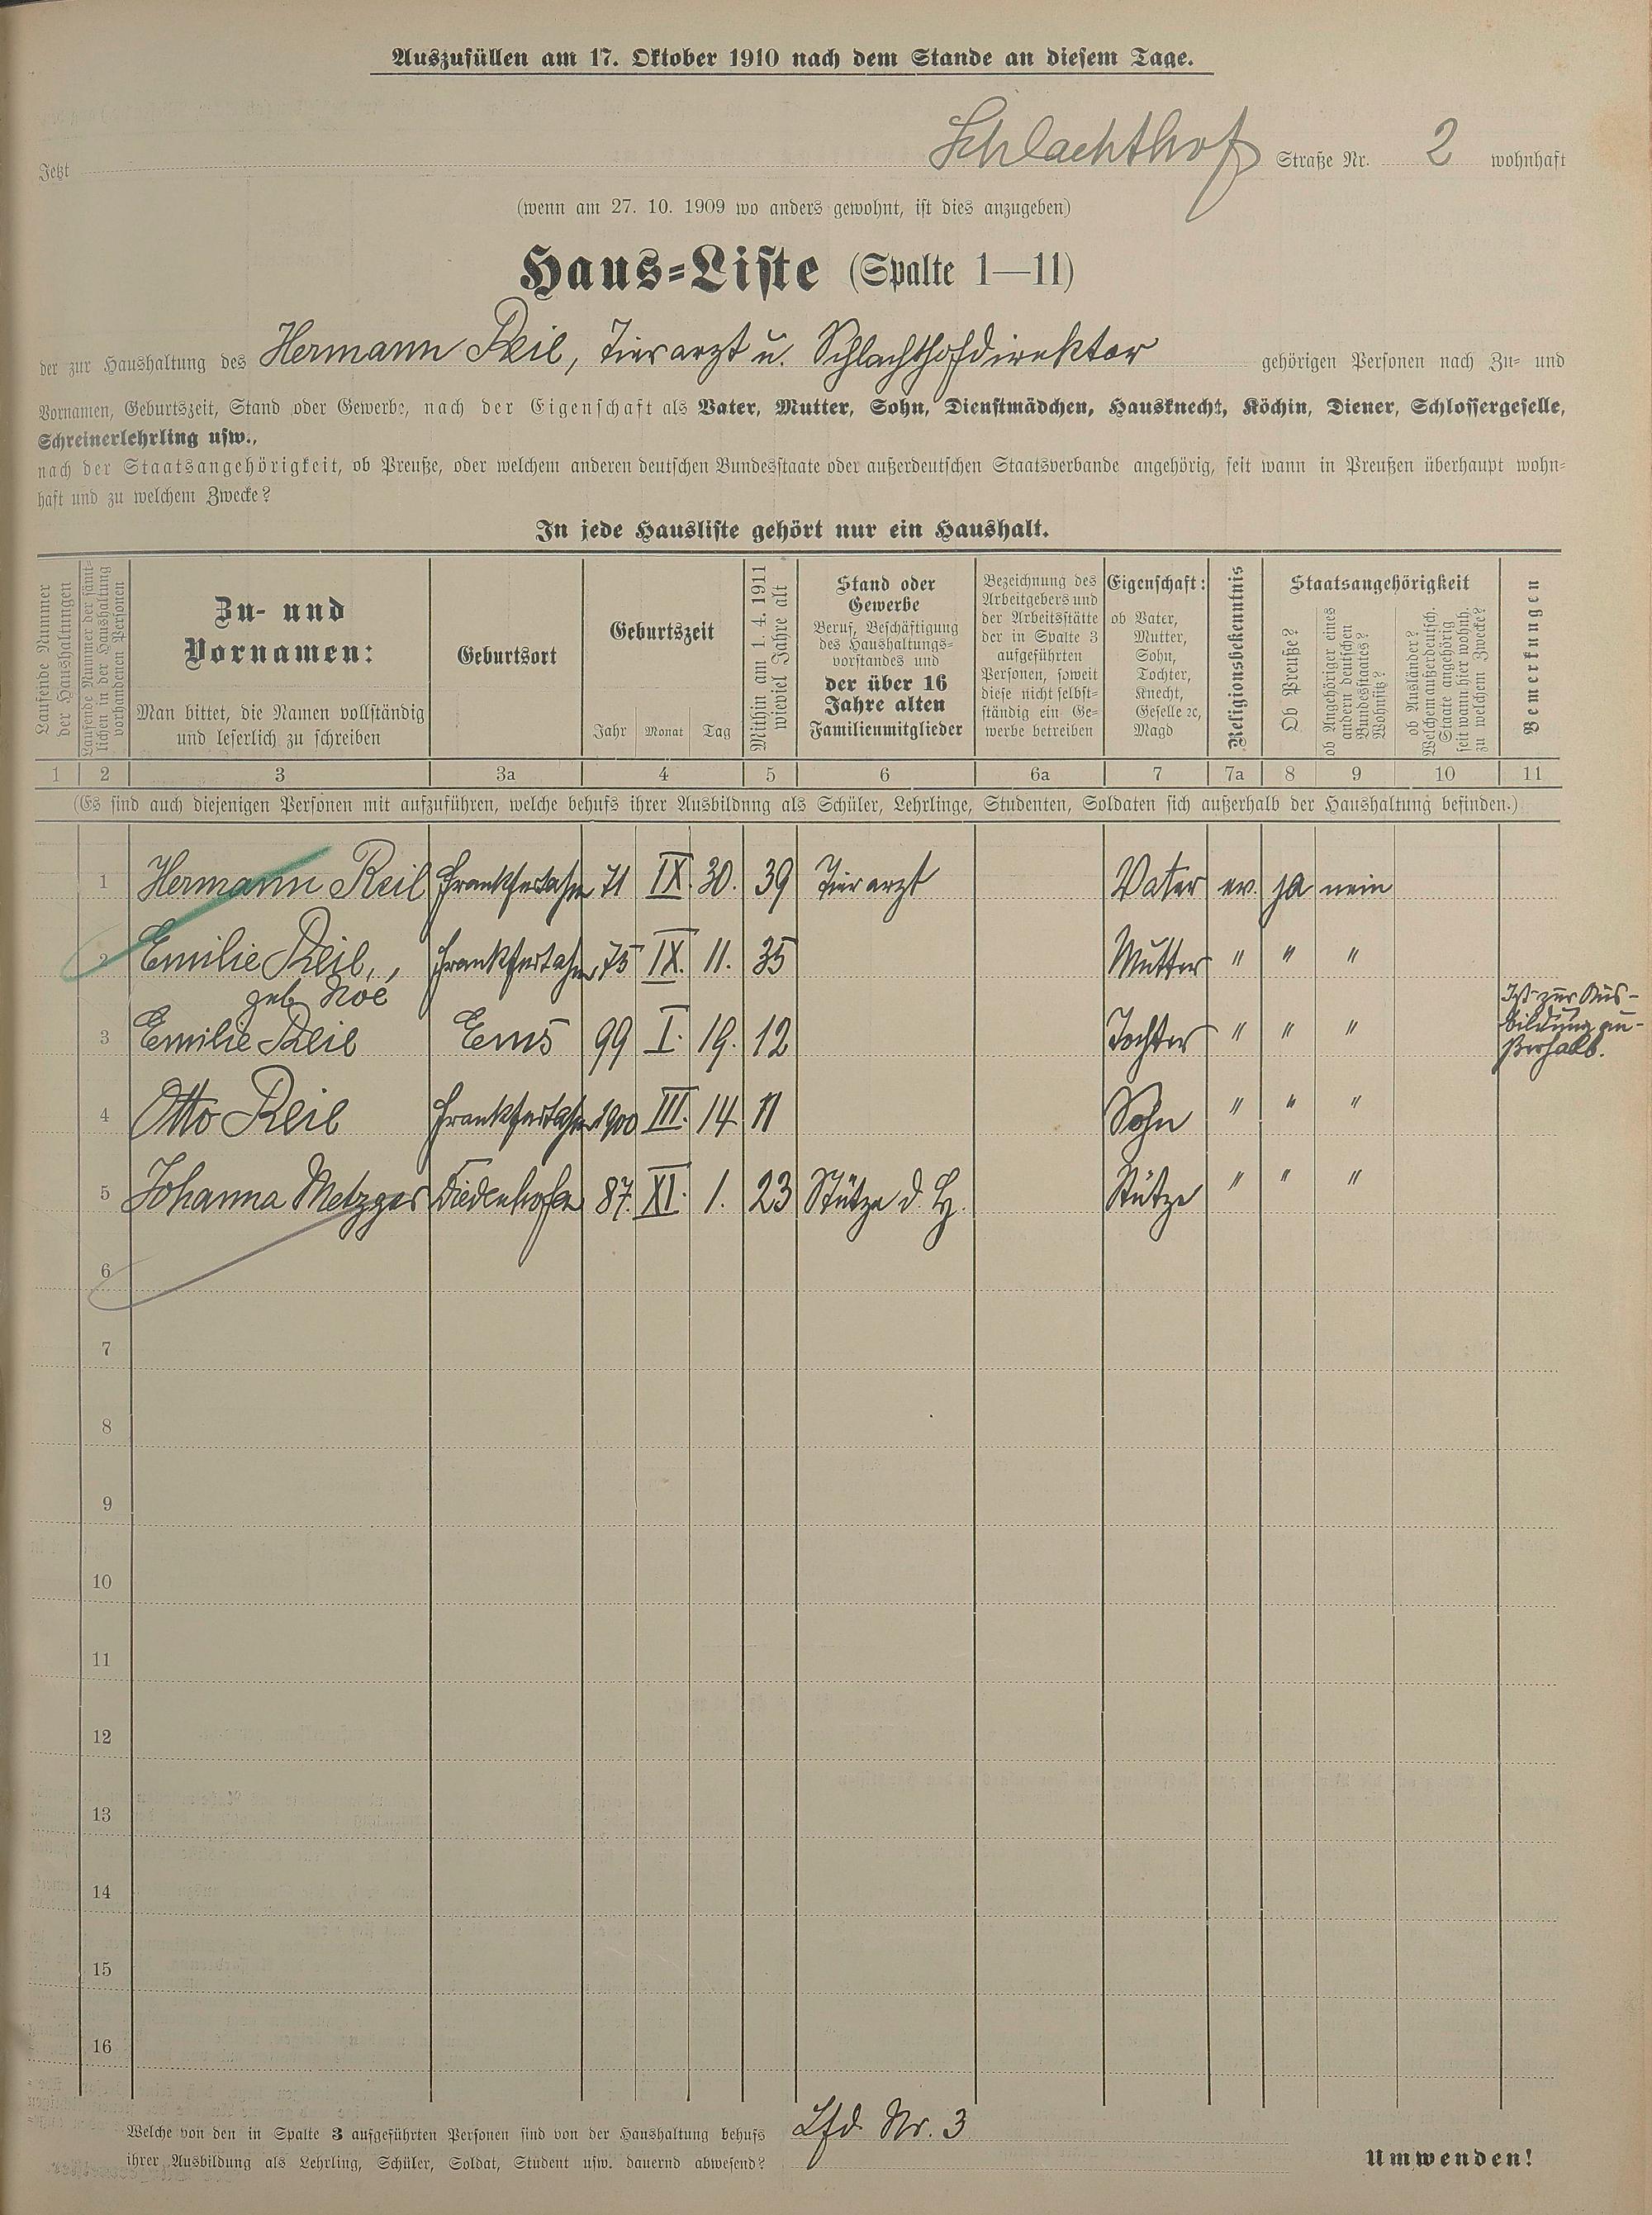 Auszufüllen am 17. Oktober 1910 nach dem Stande an diesem Tage.
Jetzt Schlachthof Straße Nr. 2 wohnhaft
(wenn am 27. 10. 1909 wo anders gewohnt, ist dies anzugeben)
Haus-Liste (Spalte 1—11)
der zur Haushaltung des Hermann Reil, Tierarzt u. Schlachthofdirektor gehörigen Personen nach Zu- und
Vornamen, Geburtszeit, Stand oder Gewerbe, nach der Eigenschaft als Vater, Mutter, Sohn, Dienstmädchen, Hausknecht, Köchin, Diener, Schlossergeselle,
Schreinerlehrling usw.,
nach der Staatsangehörigkeit, ob Preuße, oder welchem anderen deutschen Bundesstaate oder außerdeutschen Staatsverbande angehörig, seit wann in Preußen überhaupt wohn-
haft und zu welchem Zwecke?
In jede Hausliste gehört nur ein Haushalt.
Laufende Nummer
der Haushaltungen
Laufende Nummer der sämt-
lichen in der Haushaltung
vorhandenen Personen
Zu- und
Vornamen:
Man bittet, die Namen vollständig
und leserlich zu schreiben
Geburtsort
Geburtszeit
Jahr Monat Tag
Mithin am 1. 4. 1911
wieviel Jahre alt
Stand oder
Gewerbe
Beruf, Beschäftigung
des Haushaltungs-
vorstandes und
der über 16
Jahre alten
Familienmitglieder
Bezeichnung des
Arbeitgebers und
der Arbeitsstätte
der in Spalte 3
aufgeführten
Personen, soweit
diese nicht selbst-
ständig ein Ge-
werbe betreiben
Eigenschaft:
ob Vater,
Mutter,
Sohn,
Tochter,
Knecht,
Geselle ꝛc,
Magd
Religionsbekenntnis
Staatsangehörigkeit
Ob Preuße?
ob Angehöriger eines
andern deutschen
Bundesstaates?
Wohnsitz?
ob Ausländer?
Welchem außerdeutsch.
Staate angehörig
seit wann hier wohnh.
zu welchem Zwecke?
Bemerkungen
1 2 3 3a 4 5 6 6a 7 7a 8 9 10 11
(Es sind auch diejenigen Personen mit aufzuführen, welche behufs ihrer Ausbildung als Schüler, Lehrlinge, Studenten, Soldaten sich außerhalb der Haushaltung befinden.)
1 Hermann Reil 71 IX. 30. 39 Tierarzt Vater ev. ja nein
2 Emilie Reil, 75 IX. 11. 35 Mutter " " "
geb. Noé
3 Emilie Reil Ems 99 I. 19. 12 Tochter " " " Ist zur Aus-
bildung au-
ßerhalb.
4 Otto Reil 1900 III. 14. 11 Sohn " " "
5 Johanna Metzger Diedenhofen 87. XI. 1. 23 Stütze d. H. Stütze " " "
6
7
8
9
10
11
12
13
14
15
16
Welche von den in Spalte 3 aufgeführten Personen sind von der Haushaltung behufs Lfd. Nr. 3
ihrer Ausbildung als Lehrling, Schüler, Soldat, Student usw. dauernd abwesend?
Umwenden!